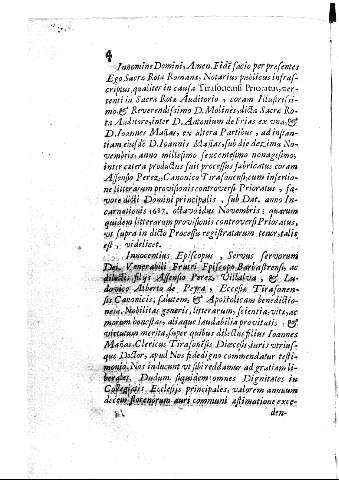 4
In nomine Domini, Amen. Fidē facio per presentes
Ego Sacræ Rotæ Romanæ, Notarius publicus infras-
criptus, qualiter in causa Tirasonensi Prioratus, ver-
tenti in Sacræ Rotæ Auditorio, coram Illustrissi-
mo, & Reverendissimo D. Molinès, dictæ Sacræ Ro-
tæ Auditore, inter D. Antonium de Frias ex una, &
D. Joannem Mañas, ex altera Partibus, ad instan-
tiam ejusdē D. Joannis Mañas, sub die dezima No-
vembris, anno millesimo sexcentesimo nonagesimo,
inter cætera productus fuit processus fabricatus coram
Assensio Perez, Canonico Tirasonensi, cum insertio-
ne litterarum provisionis controversi Prioratus, fa-
vore dicti Domini principalis, sub Dat. anno In-
carnationis 1687. octavo idus Novembris; quarum
quidem litterarum provisionis controversi Prioratus,
ut supra in dicto Processu registratarum tenor, talis
est, videlicet.
Innocentius Episcopus, Servus servorum
Dei. Venerabili Fratri Episcopo Barbastrensi, ac
dilectis filijs Assensio Perez Villalva, & Lu-
dovico Alberto de Peyra, Ecclesiæ Tirasonen-
sis Canonicis, salutem, & Apostolicam benedictio-
nem. Nobilitas generis, litterarum, scientia, vitæ, ac
morum honestas, aliaque laudabilia provitatis, &
virtutum merita, super quibus dilectus filius Joannes
Mañas, Clericus Tirasonensis Diœcesis, juris utrius-
que Doctor, apud Nos fidedigno commendatur testi-
monio, Nos inducunt ut sibi reddamur ad gratiam li-
berales. Dudum siquidem omnes Dignitates in
Collegiatis Ecclesijs principales, valorem annuum
decem florenorum auri communi æstimatione exce-
den-